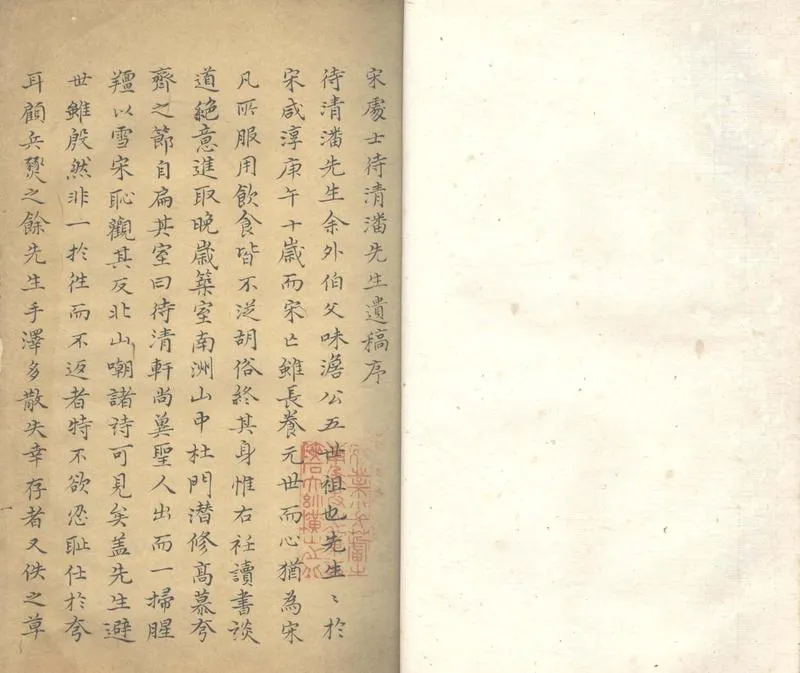 宋處士待清潘先生遺稿序
待清潘先生余外伯父味澹公五世祖也先生〻於
宋咸淳庚午十歲而宋亡雖長養元世而心猶為宋
凡所服用飲食皆不从胡俗終其身惟右衽讀書談
道絶意進取晚歲築室南洲山中杜門潜修高慕夸
齊之節自扁其室曰待清軒尚兾聖人出而一掃腥
羶以雪宋恥觀其反北山嘲諸詩可見矣盖先生避
世雖殷然非一於徃而不返者特不欲忍恥仕於夸
耳顧兵燹之餘先生手澤多散失幸存者又佚之草